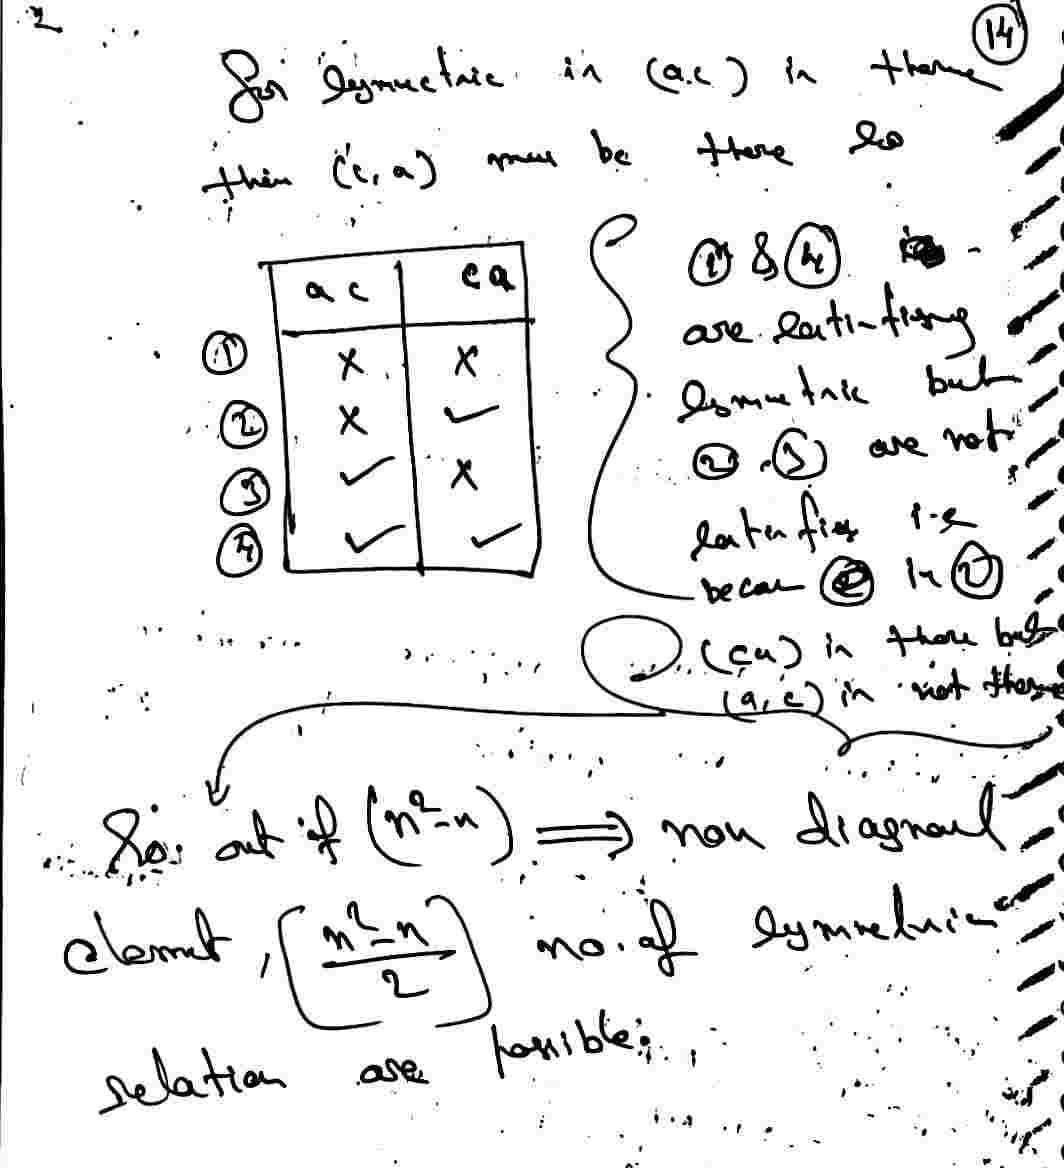 14
For Symmetric in (a.c) in there
then (c, a) must be there So
a c | c a
① × ×
② × ✓
③ ✓ ×
④ ✓ ✓
① & ④
are satisfying
Symmetric but
②, ③ are not
satisfies i.e
because in ②
(c,a) in there but
(a, c) in not there
So. out of (n²-n) ⟹ non diagnoal
elemnt, [(n²-n)/2] no. of Symmetric
relation are possible.